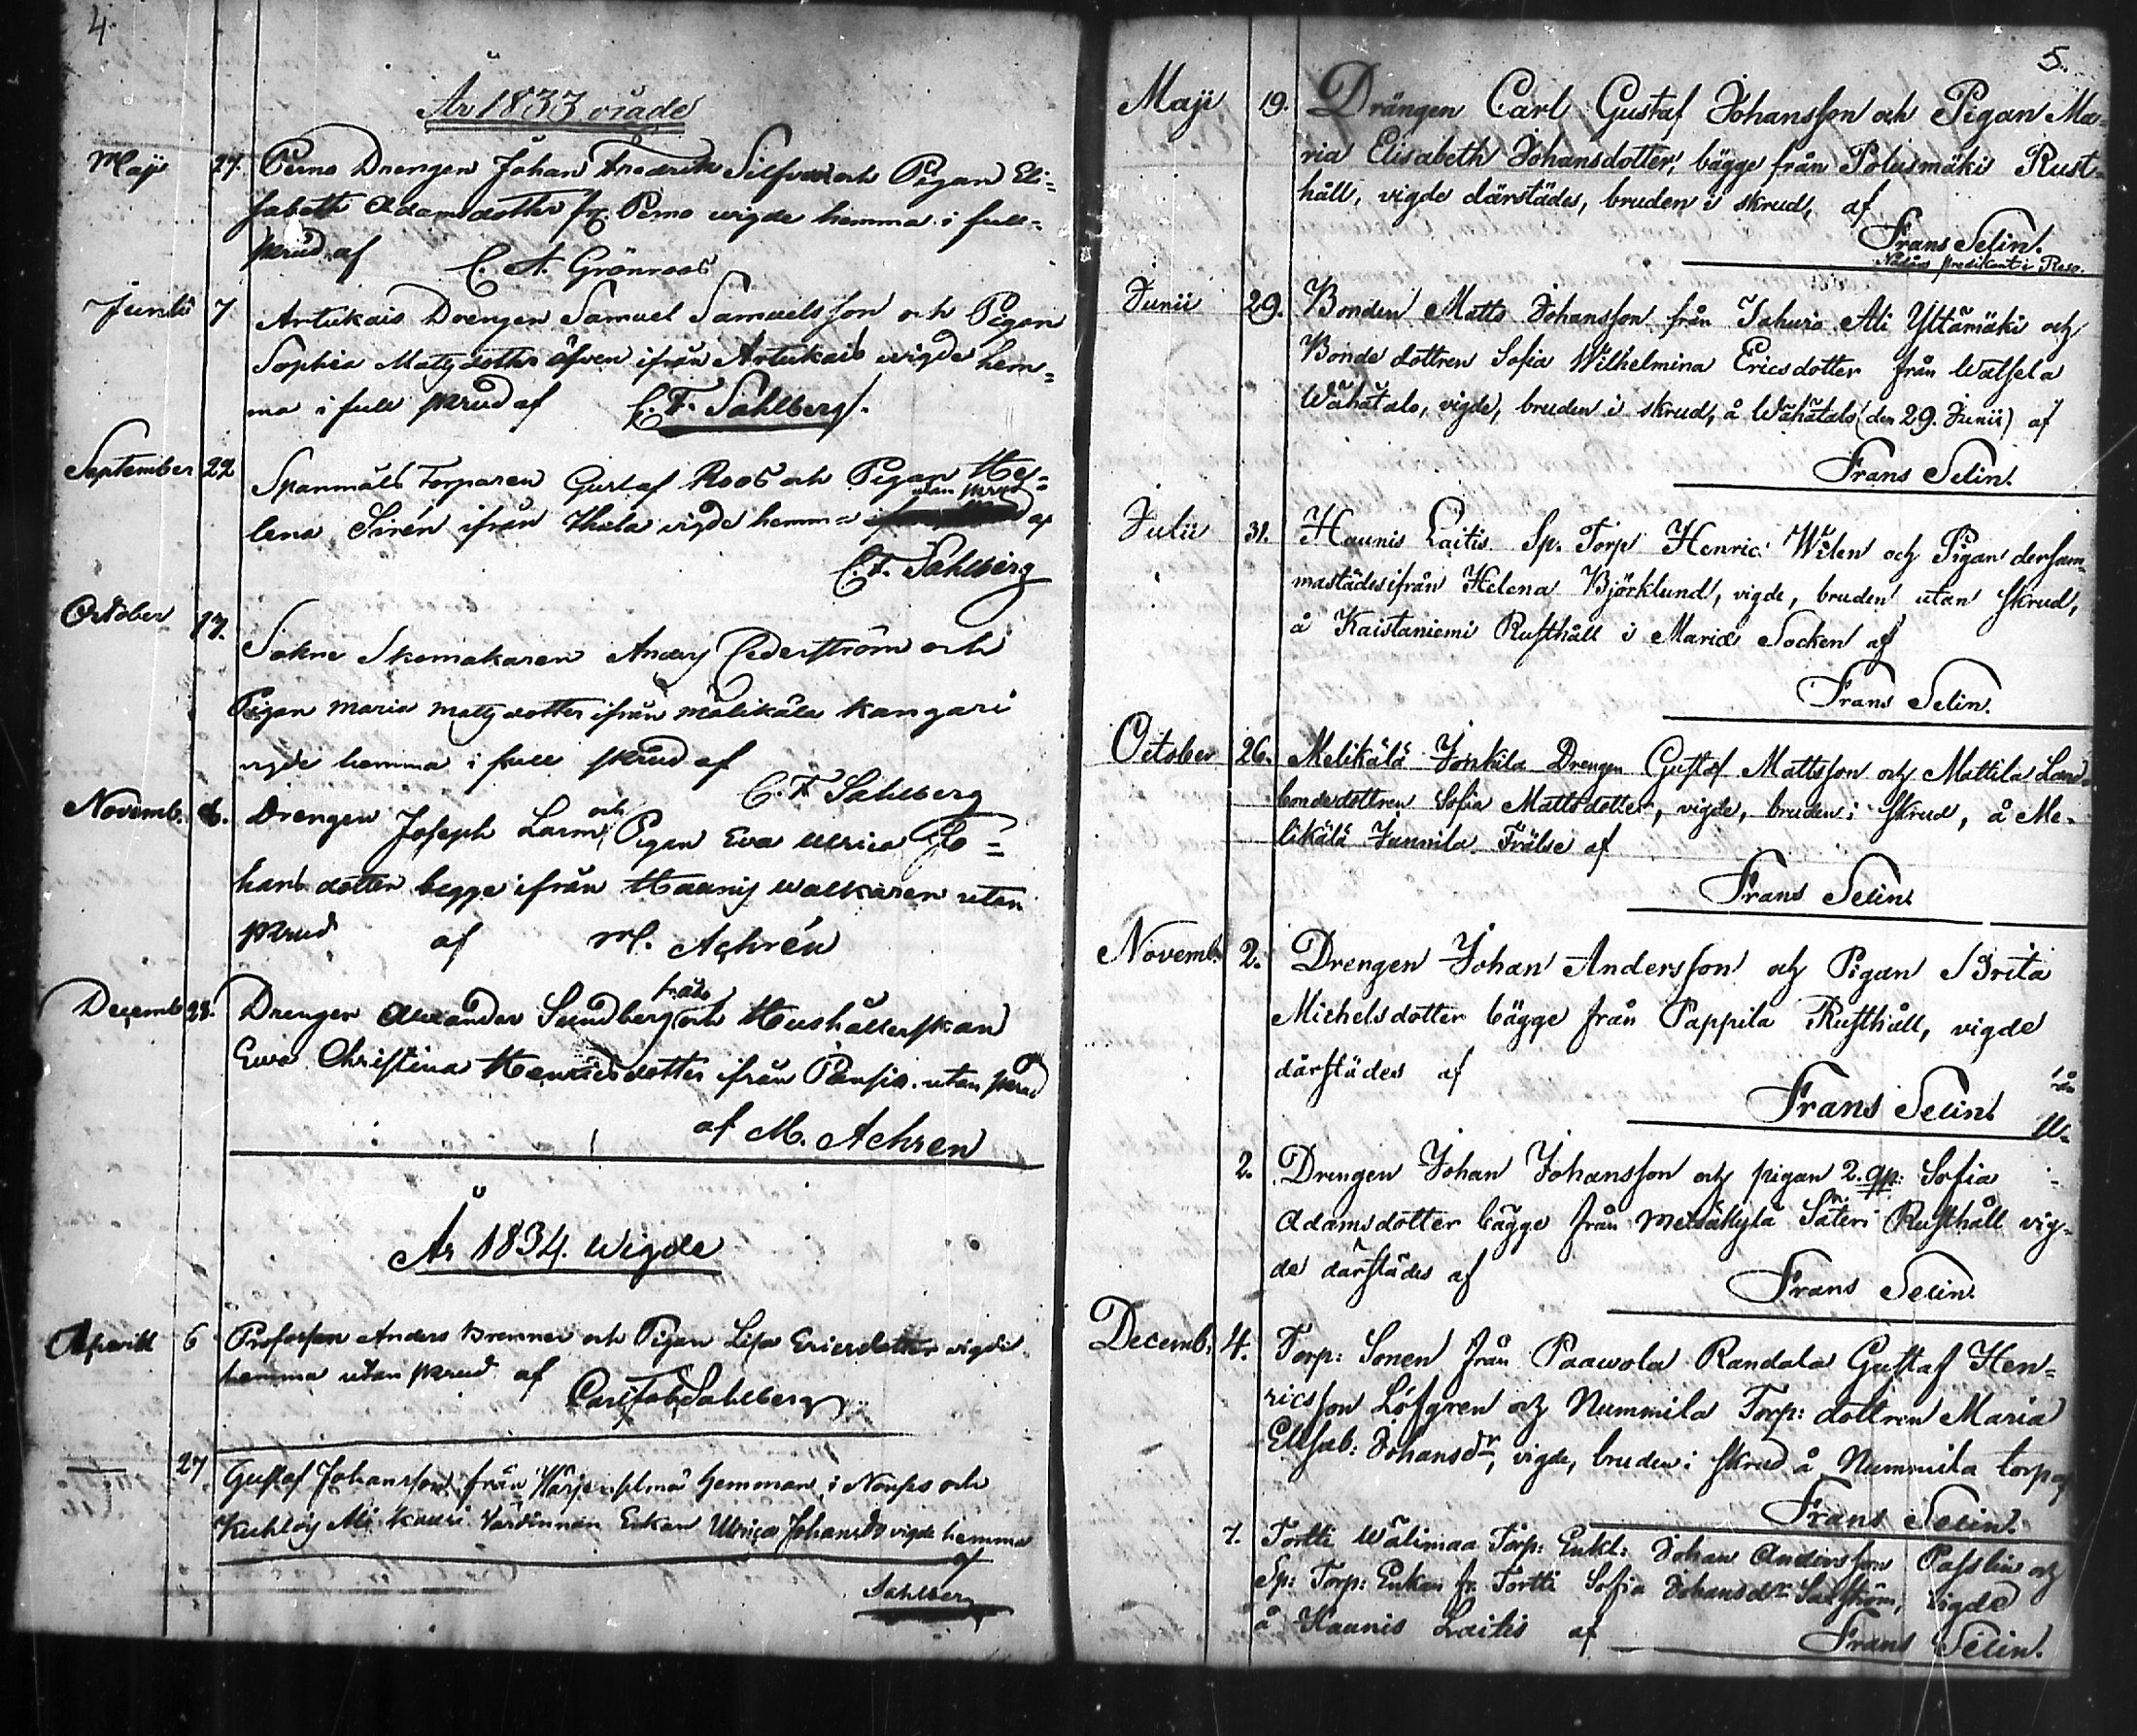 4.
År 1833 viade
Maji 27. Perno Drengen Johan Fredrik Silfver och Pigan Eli=
sabeth Adamsdotter fr. Perno wigde hemma i full=
skrud af C. A. Grönroos
Junii 7 Artukais Drengen Samuel Samuelsson och Pigan
Sophia Matsdotter äfven ifrån Artukais wigde hem=
ma i full skrud af C. F. Sahlberg.
September 22 Spanmåls Torparen Gustaf Roos och Pigan He=
utan skrud
lena Sirén ifrån Ihala vigde hemma af
C. F. Sahlberg
October 17. Sokne Skomakaren Anders Cederström och
Pigan Maria Matsdotter ifrån Mälikälä Kangari
vigde hemma i full skrud af
C. F. Sahlberg
Novemb. 6. Drengen Joseph Larm och Pigan Eva Ulrica Jo=
hansdotter begge ifrån Haunis walkaren utan
skrud af M. Achrén
Decemb 28. Drengen Alexander Sundberg från och Hushållerskan
Ewa Christina Henricsdotter ifrån Pansio utan skrud
af M. Achren
År 1834. wigde
Aprill 6 Profossen Anders Brenner och Pigan Lisa Ericsdotter vigde
hemma utan skrud af
Carl Fab Sahlberg
27 Gustaf Johansson från hemman i Nousis och
Kuhlois Ali Kauri Värdinnan Enkan Ulrica Johansd vigde hemma
af
Sahlberg
5.
Maji 19. Drängen Carl Gustaf Johansson och Pigan Ma=
ria Elisabeth Johansdotter, bägge från Polusmäki Rust=
håll, vigde därstädes, bruden i skrud, af
Frans Selin.
Nådårs predikant i Reso.
Junii 29. Bonden Matts Johansson från Ali Yltämäki och
Bonde dottren Sofia Wilhelmina Ericsdotter från Watsela
Wähätalo, vigde, bruden i skrud, å Wähätalo (den 29. Junii) af
Frans Selin.
Julii 31. Haunis Laitis Sp. Torp Henric Wilen och Pigan dersam=
mastädes ifrån Helena Björklund, vigde, bruden utan skrud,
å Kaistaniemi Rusthåll i Mariæ Socken af
Frans Selin.
October 26. Melikälä Jonkila Drengen Gustaf Mattsson och Mattila Land=
bondedottren Sofia Mattsdotter, vigde, bruden i skrud, å Me=
likälä Junnila Frälse af
Frans Selin
Novemb. 2. Drengen Johan Andersson och Pigan Brita
Michelsdotter bägge från Pappila Rusthåll, vigde
därstädes af
Frans Selin.
2. Drengen Johan Johansson och pigan 2. gg: Sofia
Adamsdotter bägge från Metsäkylä Säteri Rusthåll vig=
de därstädes af
Frans Selin.
Decemb. 4. Torp: Sonen från Paawola Randala Gustaf Hen=
ricsson Löfgren och Nummila Torp: dottren Maria
Elisab: Johansdr, vigde, bruden i skrud å Nummila torp af
Frans Selin.
7. Tortti Wälimaa Torp: Enkl: Johan Andersson Passlin och
Sp: Torp: Enkan fr. Tortti Sofia Johansdr Salström, vigde
å Haunis Laitis af Frans Selin.